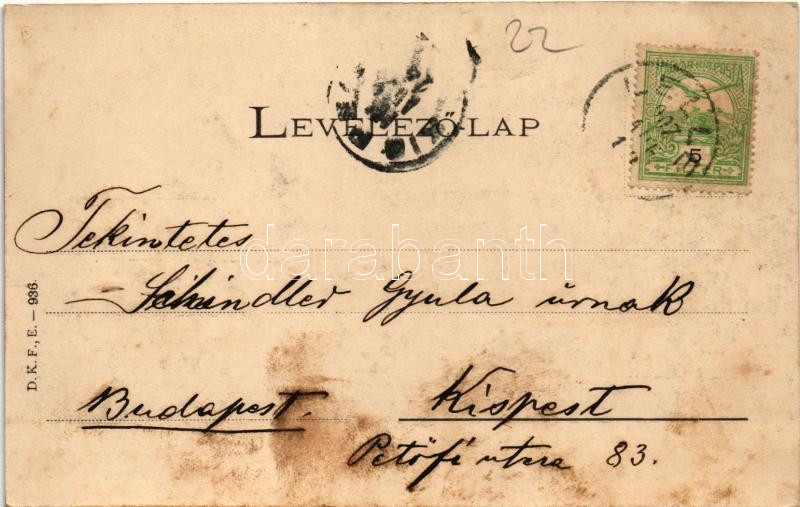 22
MAGYAR KIR. POSTA
5
FILLÉR
LEVELEZŐ-LAP
Tekintetes
Schindler Gyula úrnak
darabanth
Budapest. Kispest
Petőfi utcza 83.
D. K. F., E. — 936.